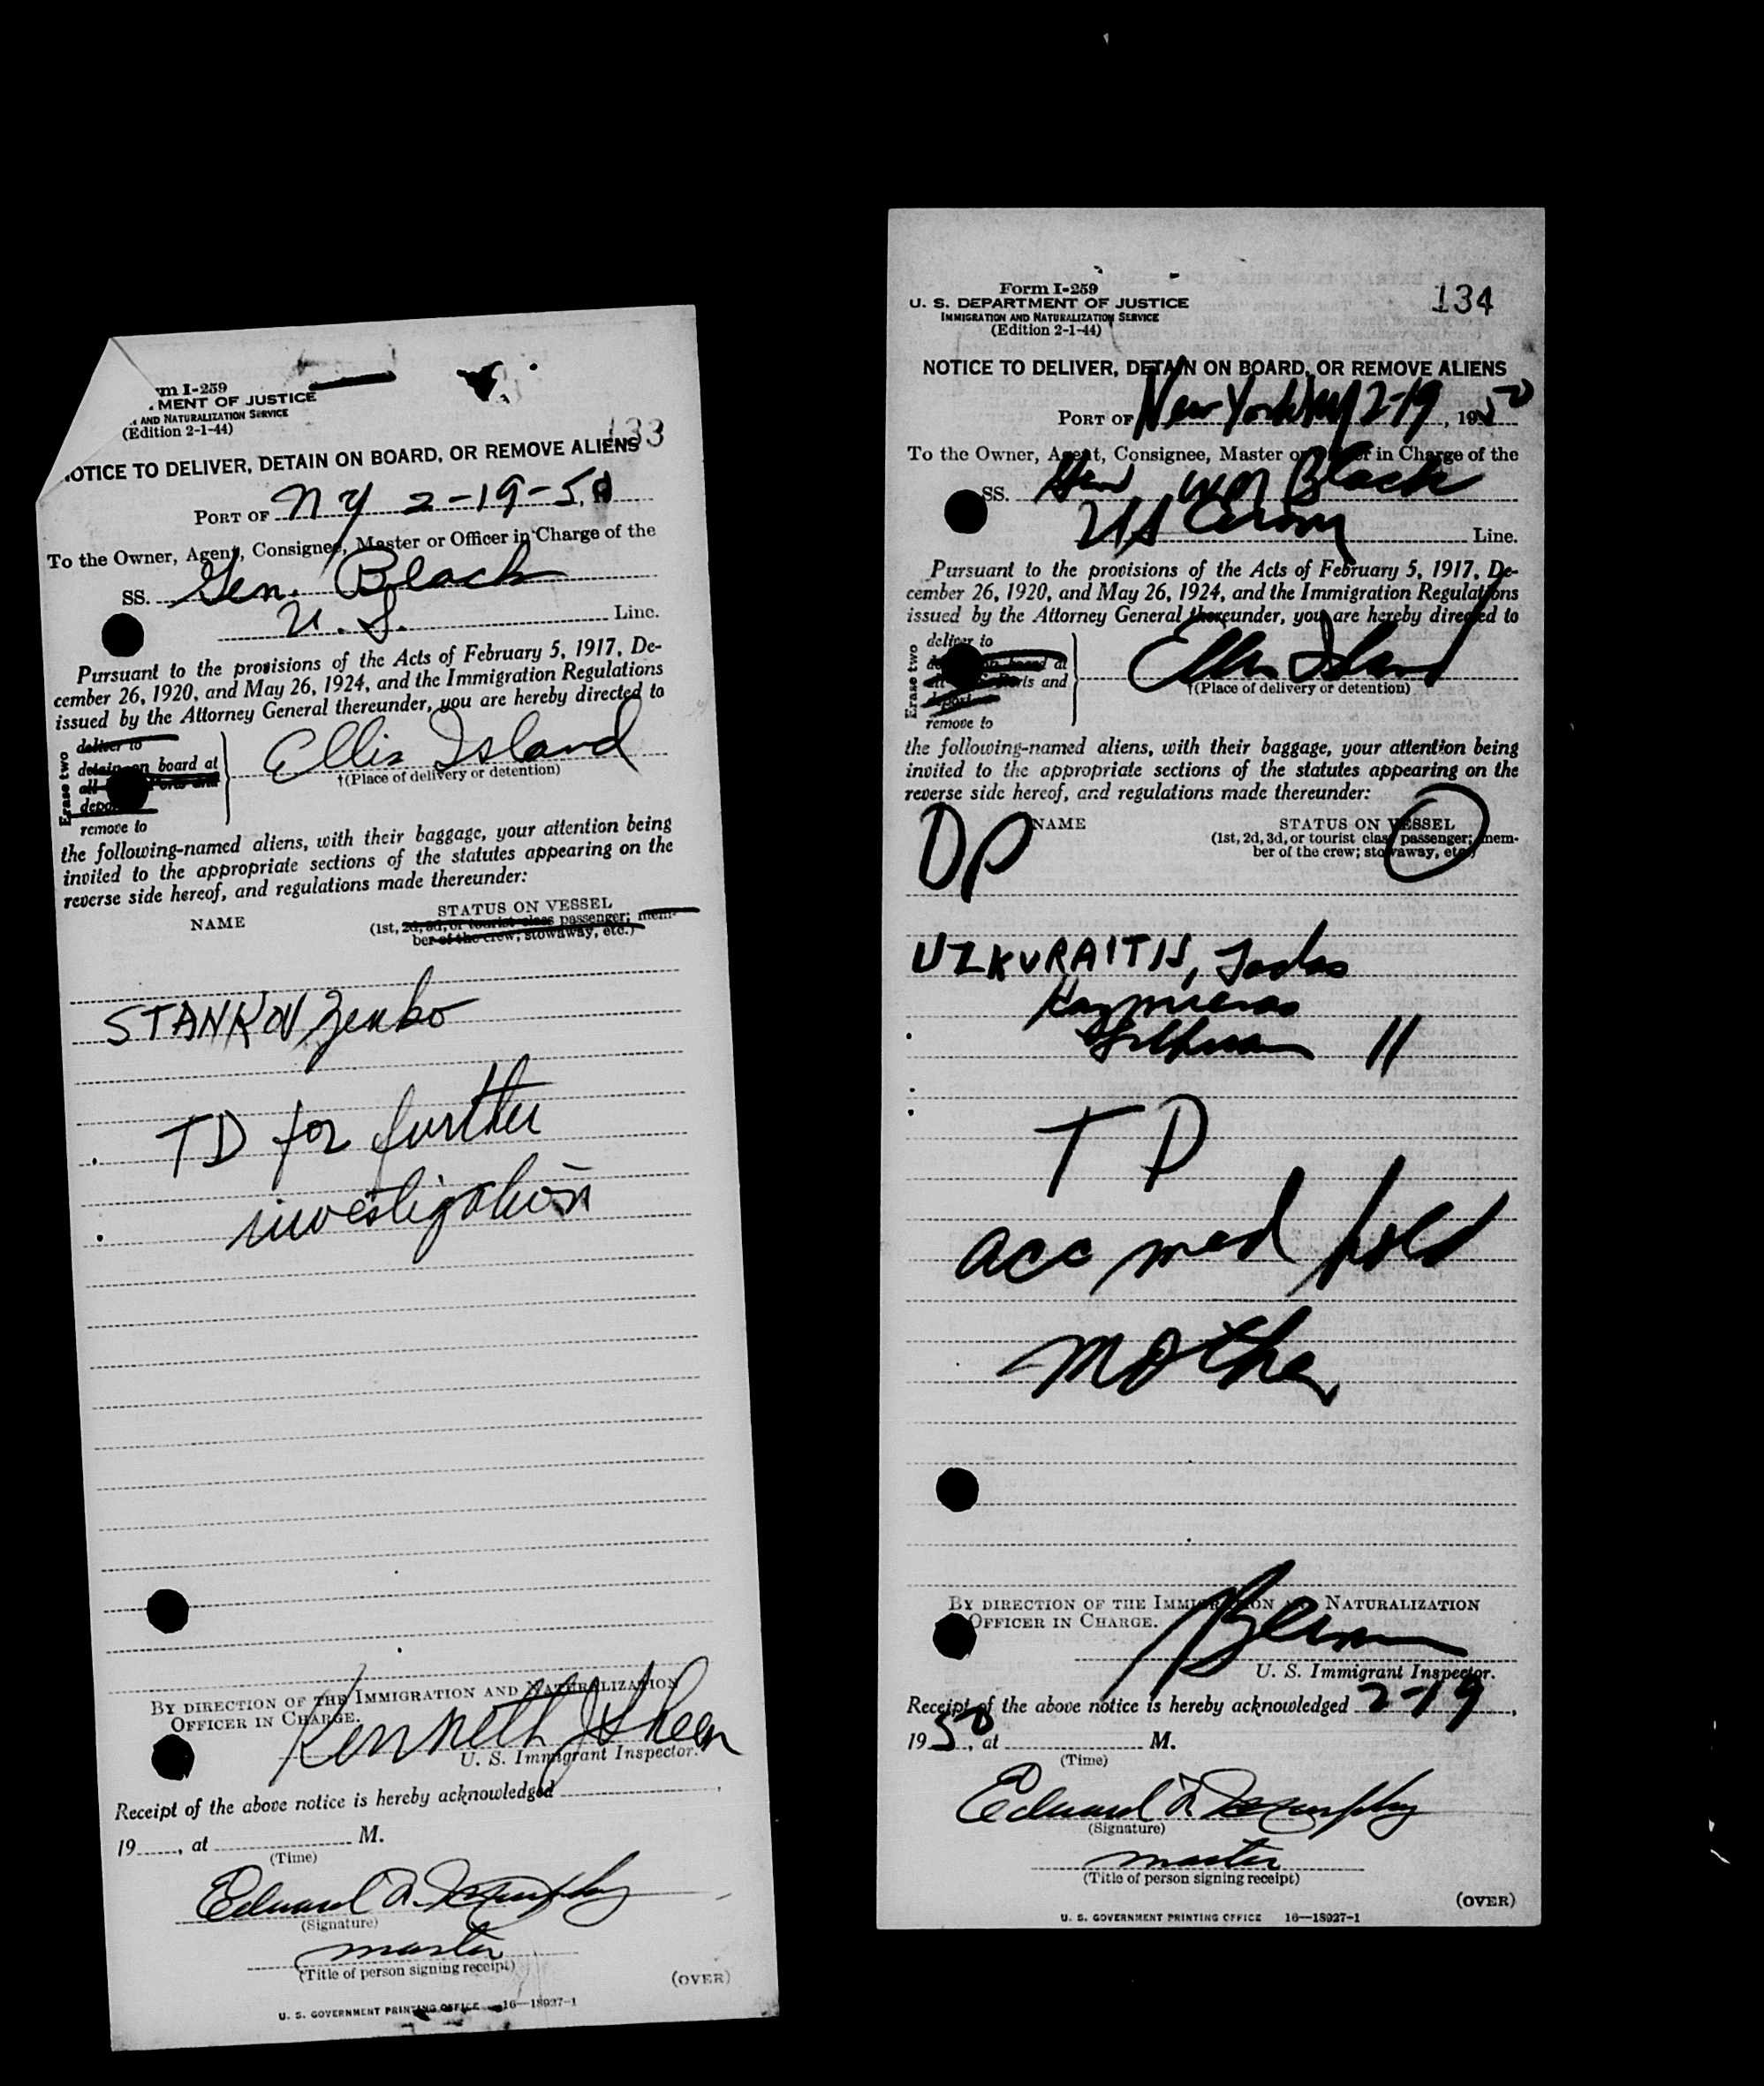 m I-259
MENT OF JUSTICE
AND NATURALIZATION SERVICE
(Edition 2-1-44)
133
OTICE TO DELIVER, DETAIN ON BOARD, OR REMOVE ALIENS
PORT OF NY 2-19-50
To the Owner, Agent, Consignee, Master or Officer in Charge of the
SS. Gen. Black
U.S. Line.
Pursuant to the provisions of the Acts of February 5, 1917, De-
cember 26, 1920, and May 26, 1924, and the Immigration Regulations
issued by the Attorney General thereunder, you are hereby directed to
Erase two
deliver to
detain on board at
all Ports and
depo
remove to
Ellis Island
†(Place of delivery or detention)
the following-named aliens, with their baggage, your attention being
invited to the appropriate sections of the statutes appearing on the
reverse side hereof, and regulations made thereunder:
NAME STATUS ON VESSEL
(1st, 2d, 3d, or tourist class passenger; mem-
ber of the crew; stowaway, etc.)
STANKOV Zenko
TD for further
investigation
BY DIRECTION OF THE IMMIGRATION AND NATURALIZATION
OFFICER IN CHARGE.
Kenneth J Sheen
U. S. Immigrant Inspector.
Receipt of the above notice is hereby acknowledged
19 , at M.
(Time)
Edward
(Signature)
master
(Title of person signing receipt)
(OVER)
U. S. GOVERNMENT PRINTING OFFICE 16—18927-1
Form I-259
U. S. DEPARTMENT OF JUSTICE
IMMIGRATION AND NATURALIZATION SERVICE
(Edition 2-1-44)
134
NOTICE TO DELIVER, DETAIN ON BOARD, OR REMOVE ALIENS
PORT OF New York NY 2-19, 1950
To the Owner, Agent, Consignee, Master or Officer in Charge of the
SS. Gen Wm Black
US Army Line.
Pursuant to the provisions of the Acts of February 5, 1917, De-
cember 26, 1920, and May 26, 1924, and the Immigration Regulations
issued by the Attorney General thereunder, you are hereby directed to
Erase two
deliver to
board at
all Ports and
deport
remove to
Ellis Island
†(Place of delivery or detention)
the following-named aliens, with their baggage, your attention being
invited to the appropriate sections of the statutes appearing on the
reverse side hereof, and regulations made thereunder:
DP NAME STATUS ON VESSEL
(1st, 2d, 3d, or tourist class passenger; mem-
ber of the crew; stowaway, etc.)
UZKURAITIS, Jodas
Kazmieras
"
TD
acc med hold
mother
BY DIRECTION OF THE IMMIGRATION AND NATURALIZATION
OFFICER IN CHARGE.
U. S. Immigrant Inspector.
Receipt of the above notice is hereby acknowledged 2-19,
1950, at M.
(Time)
Edward
(Signature)
master
(Title of person signing receipt)
(OVER)
U. S. GOVERNMENT PRINTING OFFICE 16—18927-1